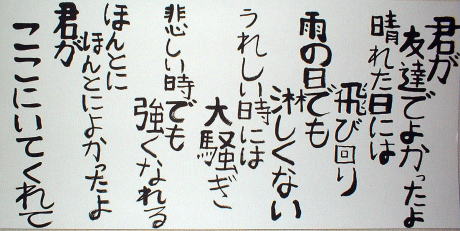 君が
友達でよかったよ
晴れた日には
飛び回り
雨の日でも
淋しくない
うれしい時には
大騒ぎ
悲しい時でも
強くなれる
ほんとに
ほんとによかったよ
君が
ここにいてくれて